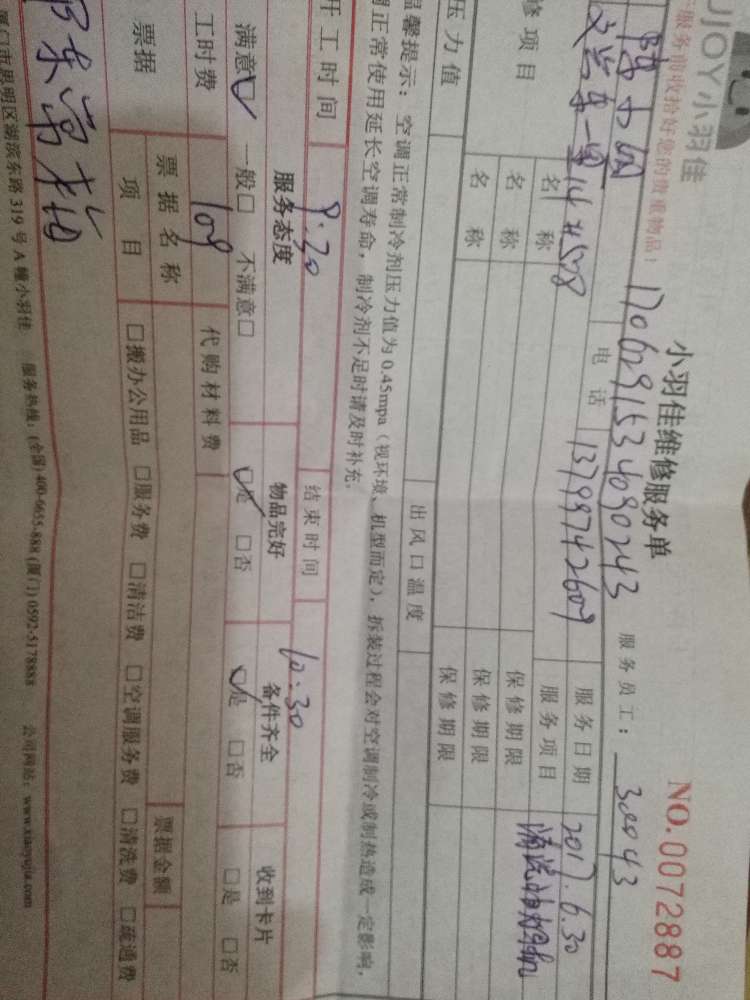 UJOY小羽佳
小羽佳维修服务单
NO.0072887
服务前收拾好您的贵重物品！
1706291534090243
服务员工： 30043
电话 13799742609 服务日期 2017.6.30
修项目 名称 服务项目 清洗油烟机
名称 保修期限
名称 保修期限
压力值 出风口温度 保修期限
温馨提示：空调正常制冷剂压力值为0.45mpa（视环境、机型而定），拆装过程会对空调制冷或制热造成一定影响，
正常使用延长空调寿命，制冷剂不足时请及时补充。
开工时间 9:30 结束时间 10:30
服务态度 物品完好 备件齐全 收到卡片
满意☑ 一般□ 不满意□ ☑是 □否 ☑是 □否 □是 □否
工时费 109 代购材料费
票据 票据名称 票据金额
项目 □搬办公用品 □服务费 □清洁费 □空调服务费 □清洗费 □疏通费
厦门市思明区湖滨东路319号A幢小羽佳 服务热线：(全国)400-6655-888 (厦门)0592-5178888 公司网站：www.xiaoyujia.com